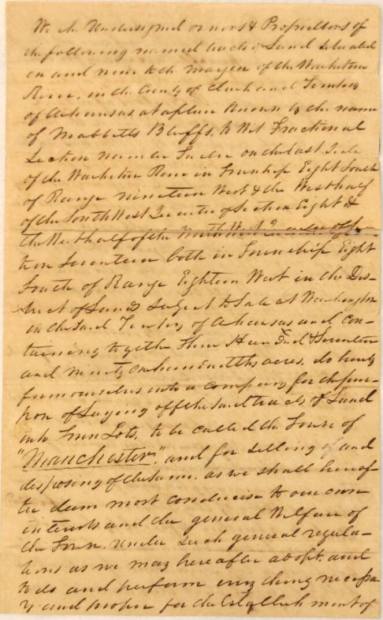 We the Undersigned owners & Proprietors of
the following named tracts of Land situated
on and near to the margin of the Wachitta
River, in the County of Clark and Territory
of Arkansas at a place known by the name
of Bluffs, to Wit Fractional
Section number on the East Side
of the River in Township Eight South
of Range nineteen West & the West half
of the South West Quarter of Section Eight &
the West half of the North West Quarter of Sec
tion Seventeen both in Township Eight
South of Range Eighteen West in the Dis
trict of Lands Subject to Sale at Washington
in the said Territory of Arkansas and con
taining together Three Hundred & Seventeen
and ninety one hundredths acres, do hereby
form ourselves into a company for the pur
pose of laying off the said tracts of Land
into Town Lots, to be called the Town of
"Manchester", and for selling and
disposing of the same, as we shall hereaf
ter deem most conducive to our own
interests and the general Welfare of
the Town. Under such general regula
tions as we may hereafter adopt, and
to do and perform every thing necessa
ry and proper for the Establishment of